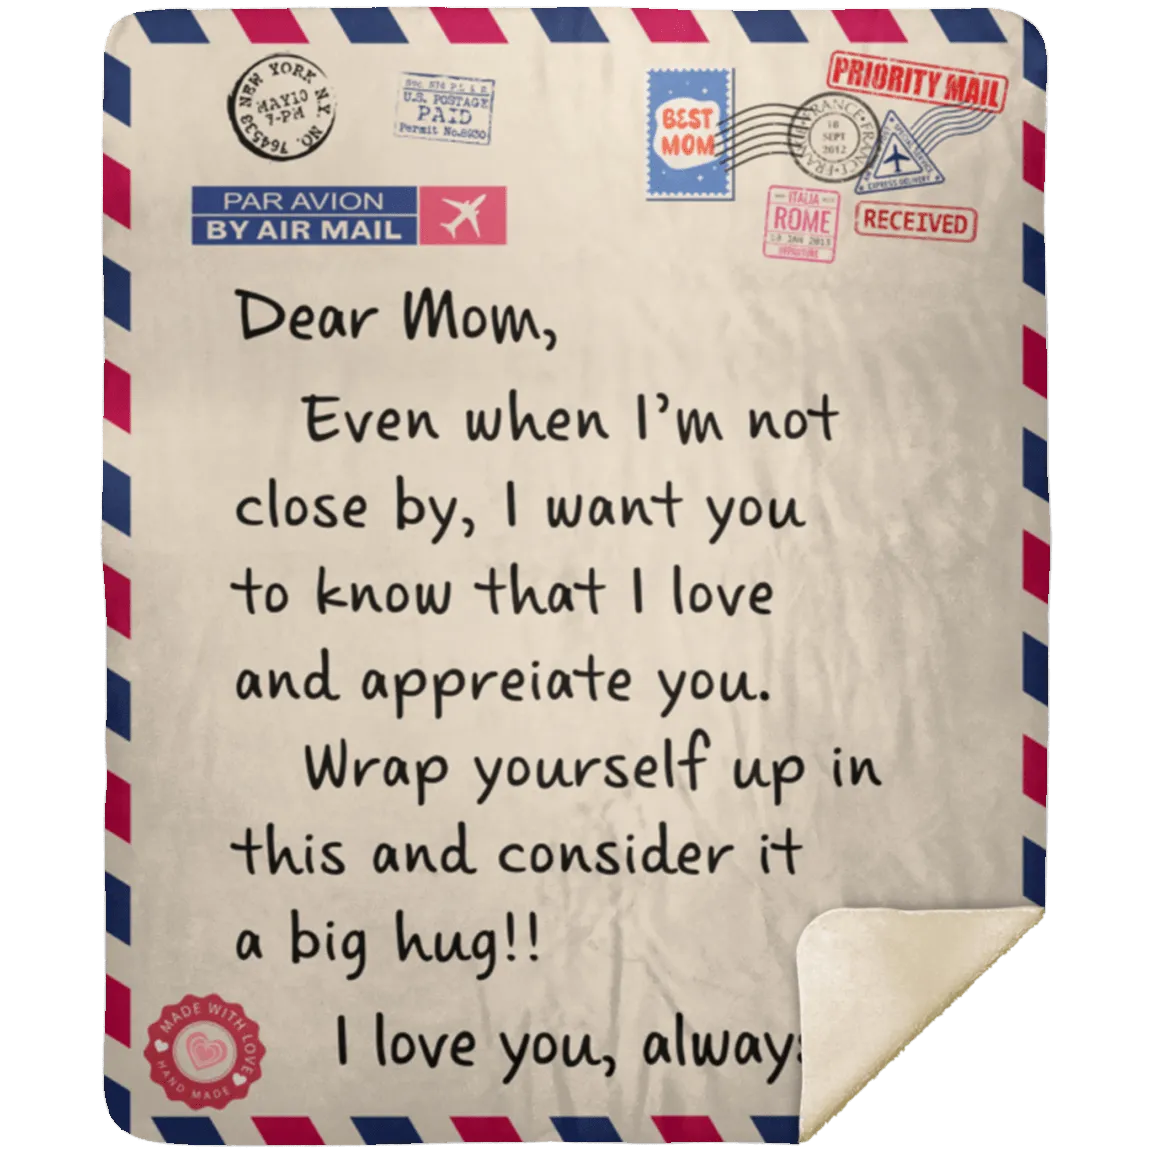 NEW YORK N.Y. NO. 764533
MAY10
7-PM
U.S. POSTAGE
PAID
Permit No.8930
BEST
MOM
PRIORITY MAIL
FRANCE·FRANCE·FRANCE
18
SEPT
2012
SPECIAL SERVICE
EXPRESS DELIVERY
ITALIA
ROME
18 JAN 2013
RECEIVED
PAR AVION
BY AIR MAIL
Dear Mom,
Even when I'm not
close by, I want you
to know that I love
and appreiate you.
Wrap yourself up in
this and consider it
a big hug!!
I love you, always
MADE WITH LOVE
HAND MADE